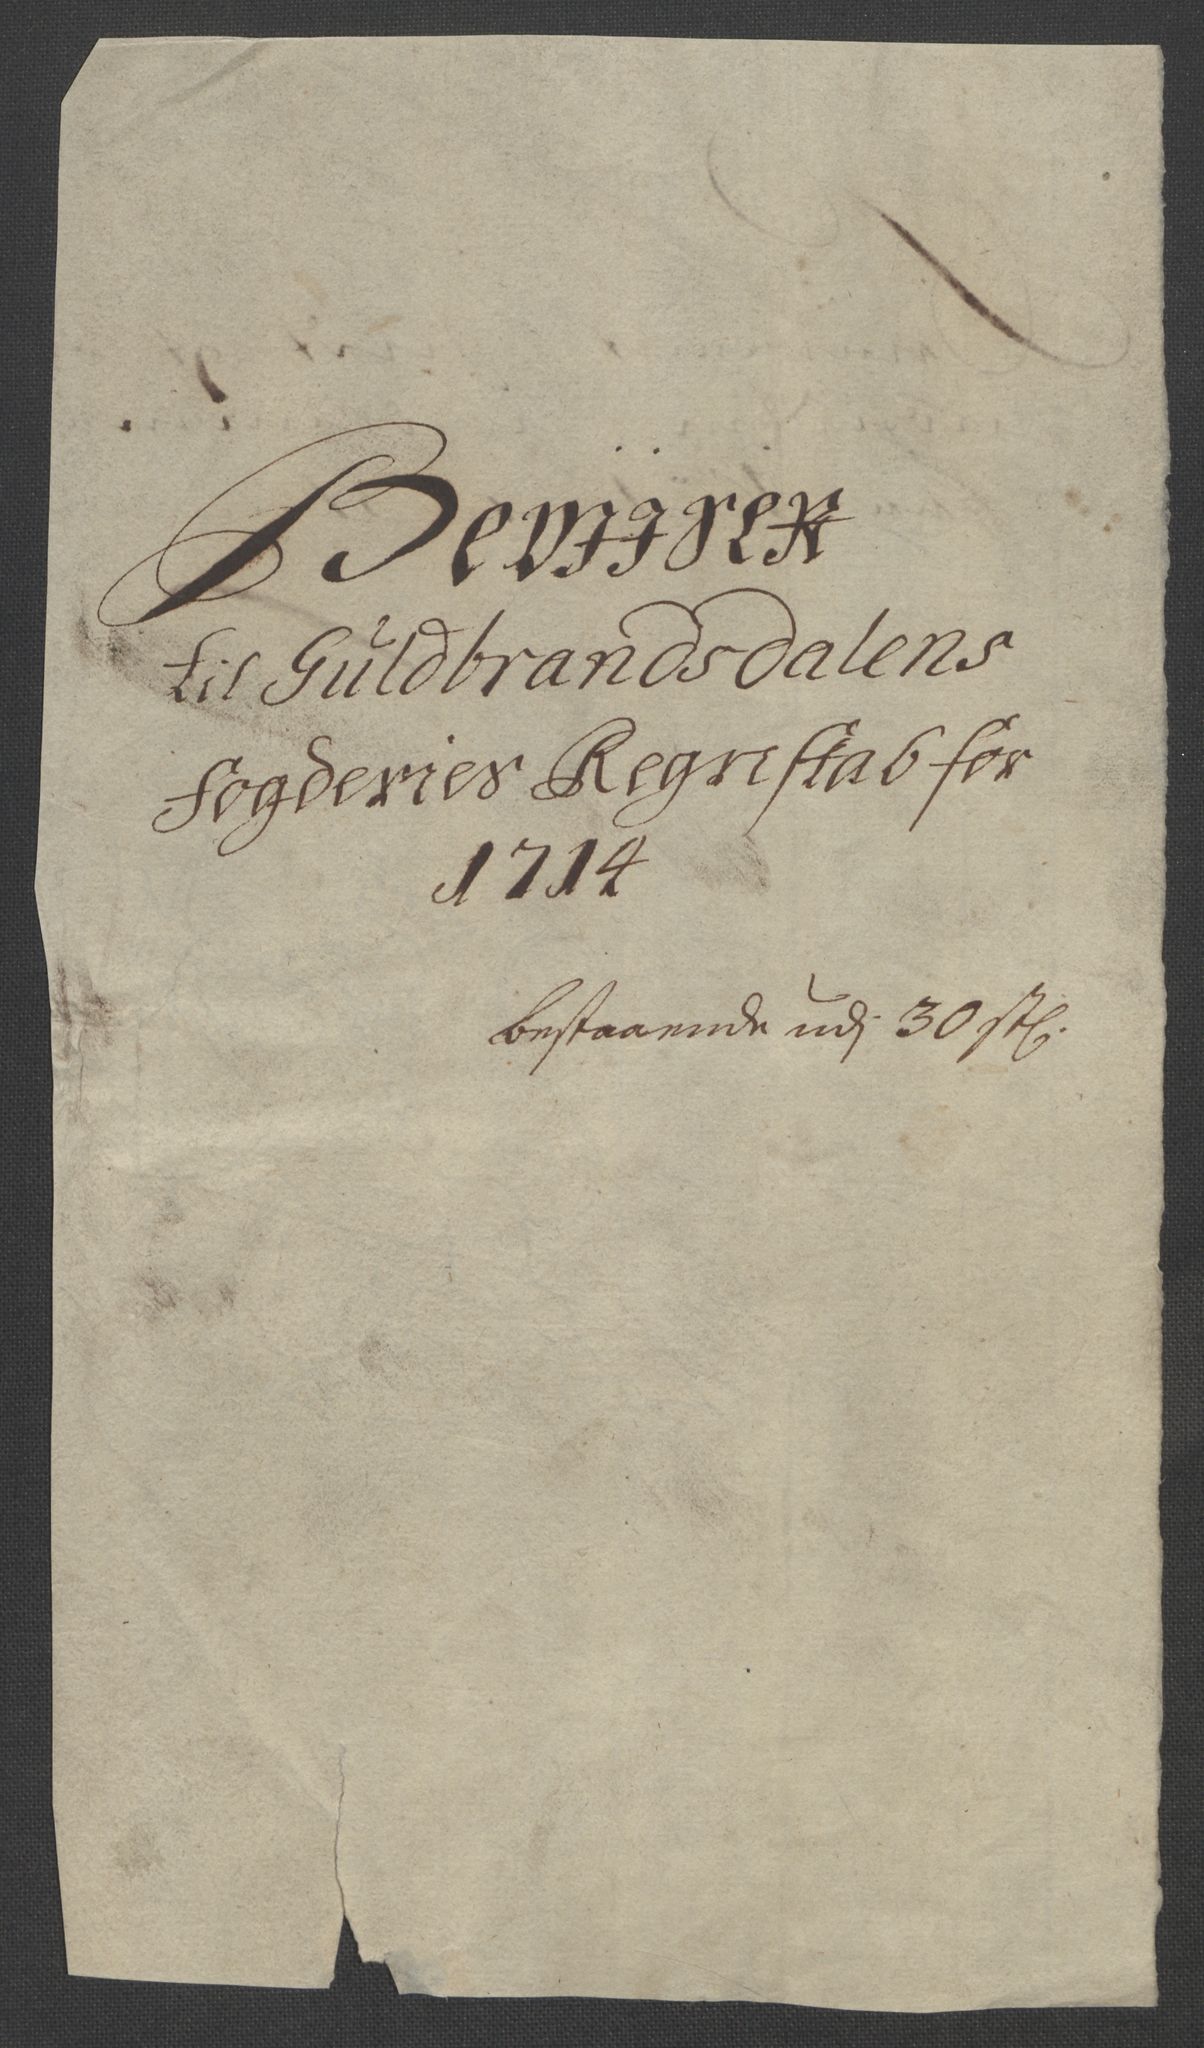 Bevjjser
til Guldbrandsdalens
fogderies Regneskab for
1714
bestaaende udj 30 stk.